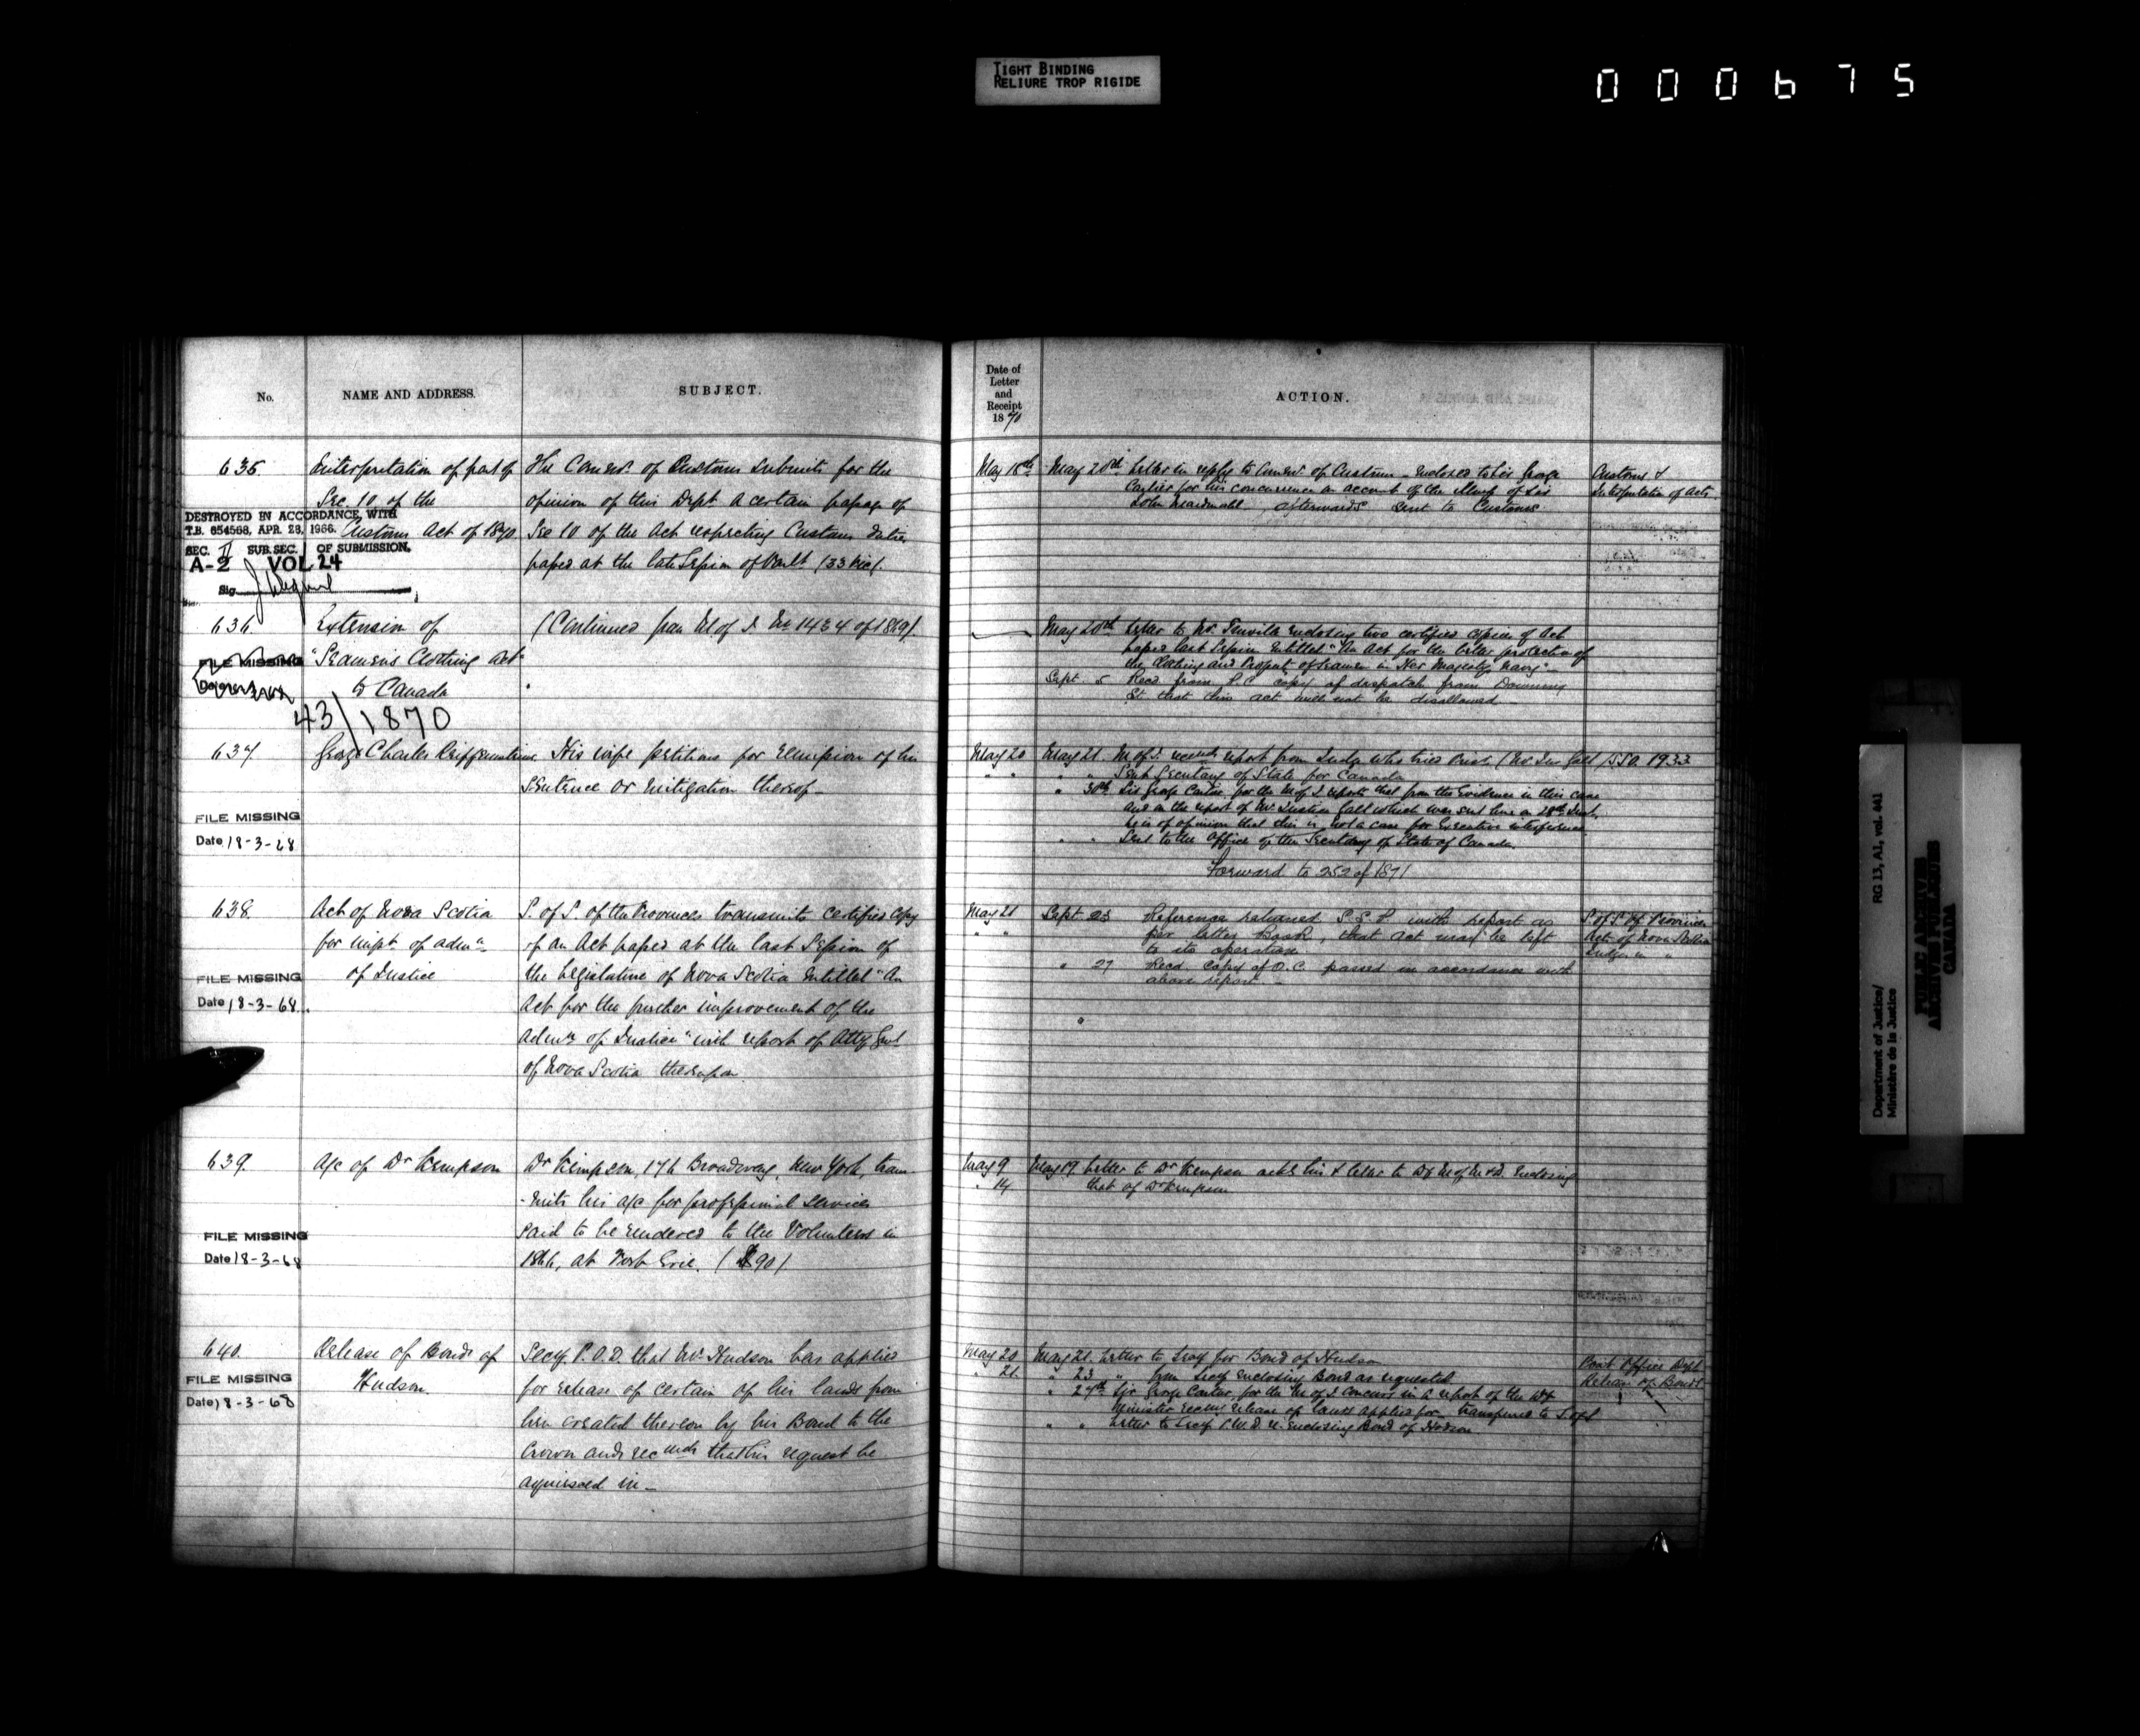 TIGHT BINDING
RELIURE TROP RIGIDE
000675
No.
NAME AND ADDRESS.
SUBJECT.
635.
Interpretation of part of
Sec. 10 of the
Customs Act of 1870
DESTROYED IN ACCORDANCE WITH
T.B. 654568, APR. 28, 1966.
SEC. II SUB. SEC. OF SUBMISSION.
A-2 VOL 24
Sig
The Commr. of Customs submits for the
opinion of this Dept a certain passage of
Sec 10 of the Act respecting Customs duties
passed at the late Session of Parlt (33 Vic).
636.
Extension of
"Seamen's Clothing Act"
to Canada
FILE MISSING
43/1870
(Continued from M of J. No 1434 of 1869).
637.
George Charles
His wife petitions for remission of his
sentence or mitigation thereof_
FILE MISSING
Date 18-3-68
638.
Act of Nova Scotia
for impt of admn
of Justice
FILE MISSING
Date 18-3-68
S. of S. of the Provinces transmits certified copy
of an Act passed at the last Session of
the Legislature of Nova Scotia entitled "An
Act for the further improvement of the
Admn of Justice" with report of Atty Genl
of Nova Scotia thereupon
639.
A/c of Dr Kempson
FILE MISSING
Date 18-3-68
Dr Kempson, 176 Broadway, New York, trans-
-mits his a/c for professional services
said to be rendered to the Volunteers in
1866, at Fort Erie. ($90)
640.
Release of Bond of
Hudson.
FILE MISSING
Date 18-3-68
Secy. P.O.D. that Mr. Hudson has applied
for release of certain of his lands from
lien created thereon by his Bond to the
Crown and recmds that his request be
acquiesced in_
Date of
Letter
and
Receipt
1870
ACTION.
May 18th
May 20th Letter in reply to Commr. of Customs - enclosed to Sir George
Cartier for his concurrence on account of the illness of Sir
John Macdonald_, afterwards sent to Customs
Customs &
Interpretation of Acts
May 20th Letter to Mr. enclosing two certified copies of Act
passed last Session entitled "An Act for the better protection of
the Clothing and Property of Seamen in Her Majesty's Navy"_
Sept. 5 Recd from P.C. copy of despatch from Downing
St that this act will not be disallowed_
May 20
May 21. M of J. recmds report from Judge who tried Prisr. (Mr. Jus Galt) S.S.O. 1933
" " Sent Secretary of State for Canada
" 30th Sir George Cartier for the M of J. reports that from the evidence in this case
and on the report of Mr. Justice Galt which was sent here on 28th Inst,
he is of opinion that this is not a case for Executive interference
" " Sent to the Office of the Secretary of State of Canada.
Forward to 252 of 1871
May 21
" "
Sept. 23 Reference returned S.S.P. with report as
per letter book, that act may be left
to its operation
" 27 Recd copy of O.C. passed in accordance with
above report_
S. of S. of Provinces
Acts of Nova Scotia
May 9
" 14
May 19 Letter to Dr Kempson ackg his & letter to Dy M of M & D. enclosing
that of Dr Kempson
May 20
" 21
May 21. Letter to Secy for Bond of Hudson
" 23 " from Secy enclosing Bond as requested
" 27th Sir George Cartier, for the M of J. concurs in a report of the Dy
Minister recmg release of lands applied for, transferred to
" " Letter to Secy enclosing Bond of Hudson
Post Office Dept
Release of Bonds
Department of Justice/
Ministère de la Justice
RG 13, A1, vol. 441
PUBLIC ARCHIVES
ARCHIVES PUBLIQUES
CANADA